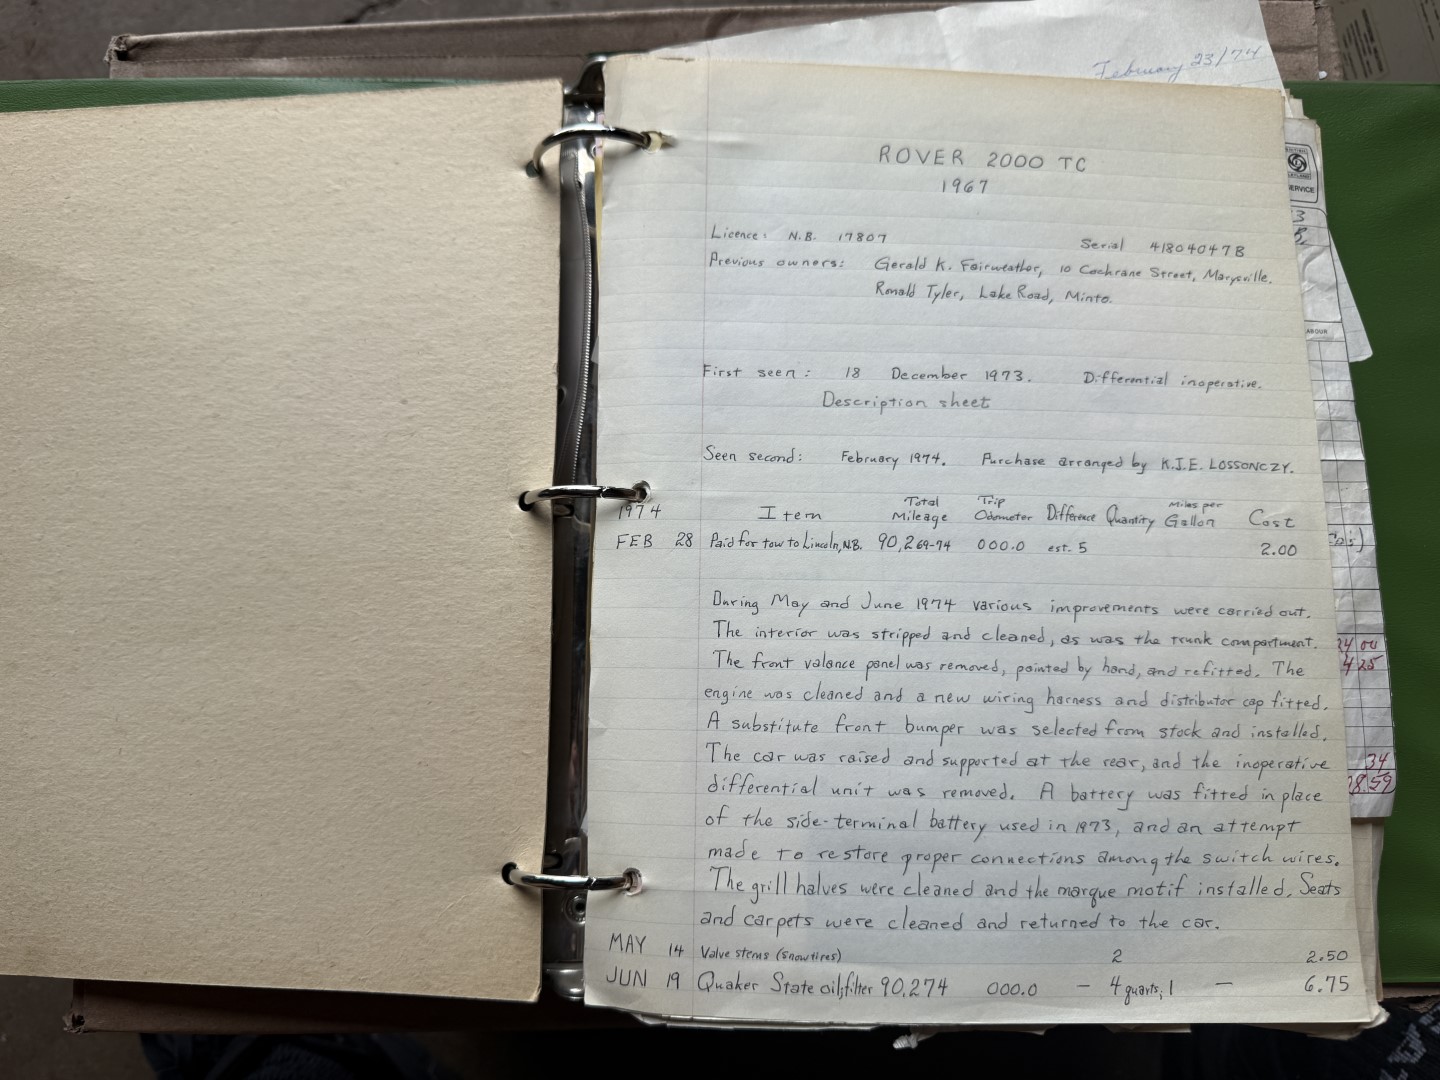 February 23/74
ROVER 2000 TC
1967
SERVICE
Licence: N.B. 17807 Serial 41804047B
Previous owners: Gerald K. Fairweather, 10 Cochrane Street, Marysville.
Ronald Tyler, Lake Road, Minto.
LABOUR
First seen: 18 December 1973. Differential inoperative.
Description sheet
Seen second: February 1974. Purchase arranged by K.J.E. LOSSONCZY.
1974 Item Total Mileage Trip Odometer Difference Quantity Miles per Gallon Cost
FEB 28 Paid for tow to Lincoln, N.B. 90,269-74 000.0 est. 5 2.00
During May and June 1974 various improvements were carried out.
The interior was stripped and cleaned, as was the trunk compartment.
The front valance panel was removed, painted by hand, and refitted. The
engine was cleaned and a new wiring harness and distributor cap fitted.
A substitute front bumper was selected from stock and installed.
The car was raised and supported at the rear, and the inoperative
differential unit was removed. A battery was fitted in place
of the side-terminal battery used in 1973, and an attempt
made to restore proper connections among the switch wires.
The grill halves were cleaned and the marque motif installed. Seats
and carpets were cleaned and returned to the car.
MAY 14 Valve stems (snowtires) 2 2.50
JUN 19 Quaker State oil, filter 90,274 000.0 – 4 quarts, 1 – 6.75